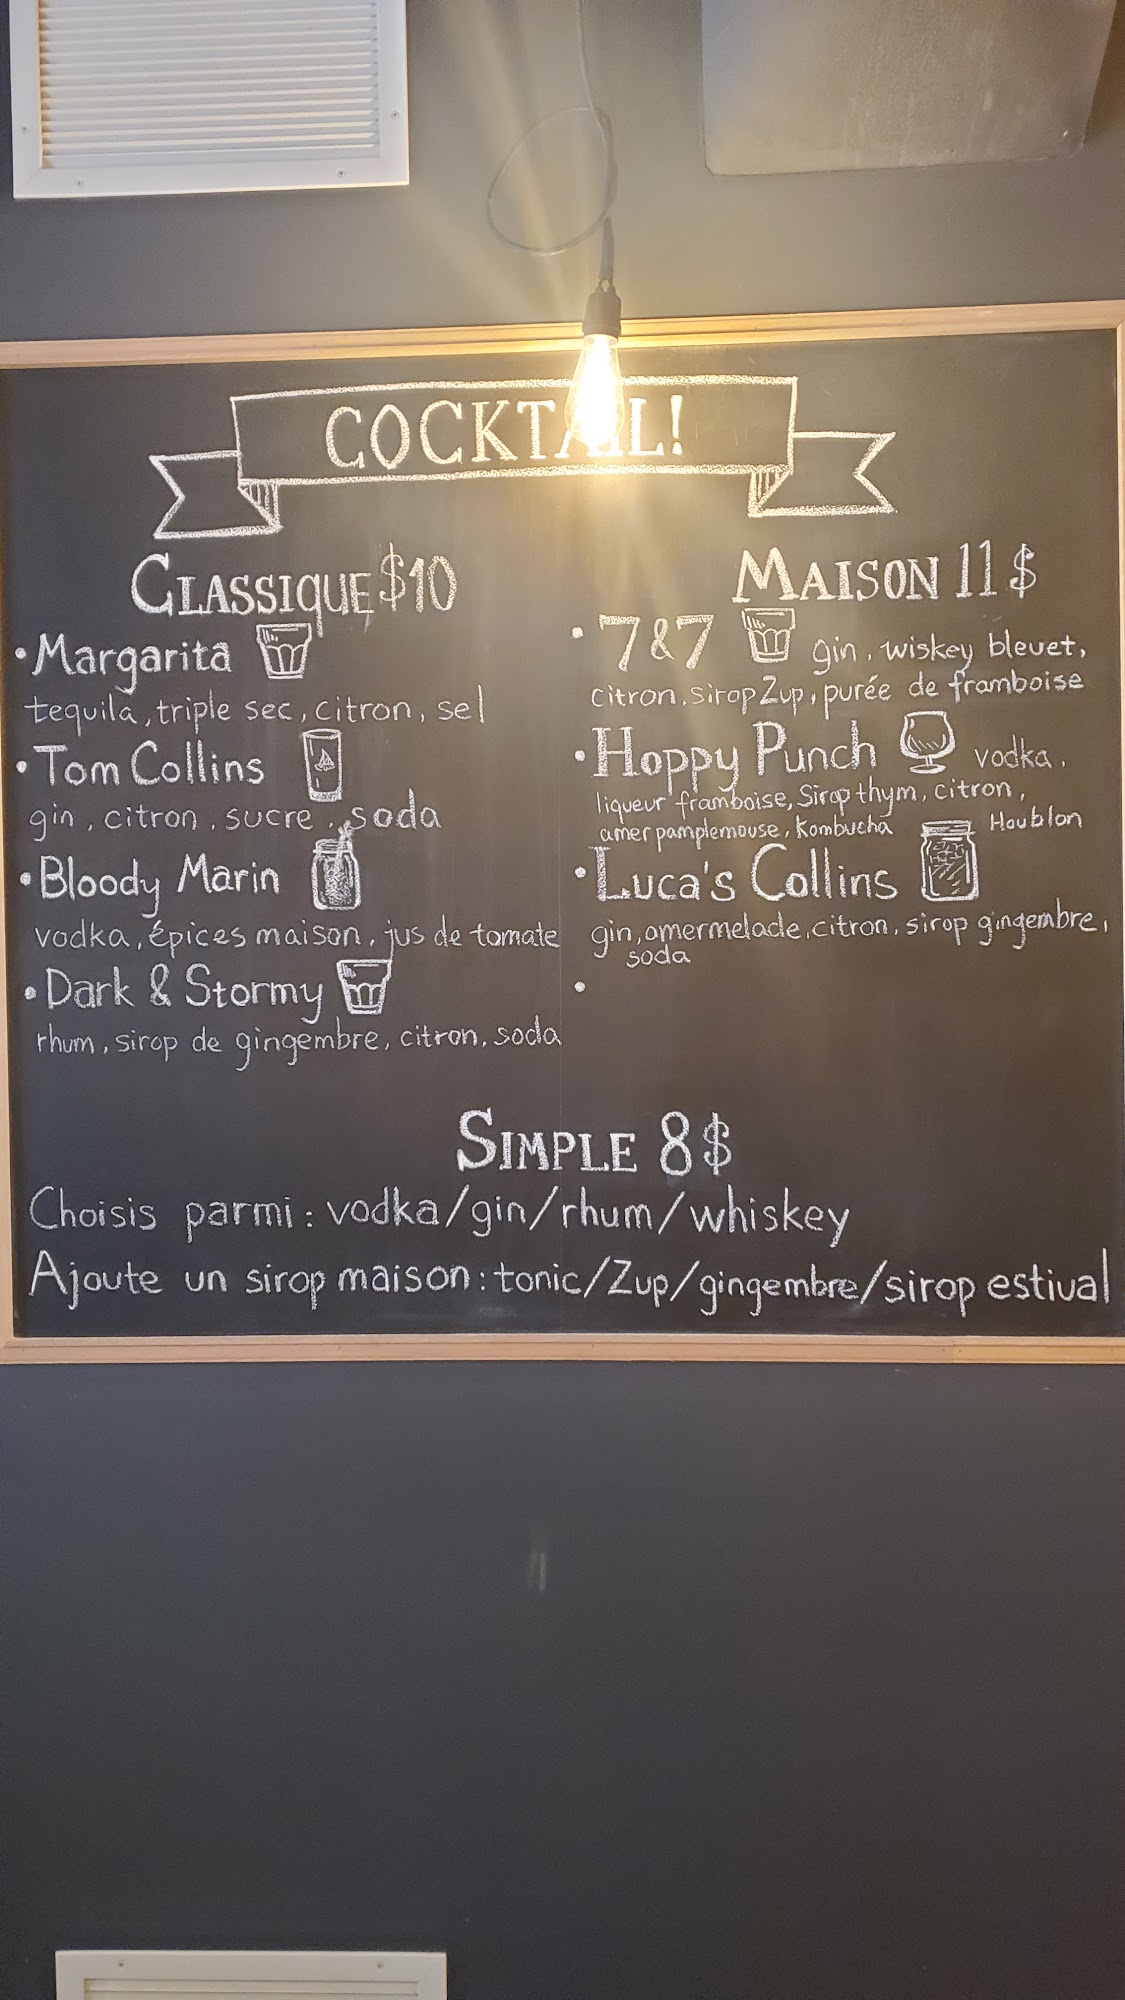 COCKTAIL!
CLASSIQUE $10
• Margarita
tequila, triple sec, citron, sel
• Tom Collins
gin, citron, sucre, soda
• Bloody Marin
vodka, épices maison, jus de tomate
• Dark & Stormy
rhum, sirop de gingembre, citron, soda
MAISON 11$
• 7&7 gin, wiskey bleuet,
citron, sirop Zup, purée de framboise
• Hoppy Punch vodka,
liqueur framboise, Sirop thym, citron,
amer pamplemouse, Kombucha Houblon
• Luca's Collins
gin, amermelade, citron, sirop gingembre,
soda
•
SIMPLE 8$
Choisis parmi: vodka/gin/rhum/whiskey
Ajoute un sirop maison: tonic/Zup/gingembre/sirop estival